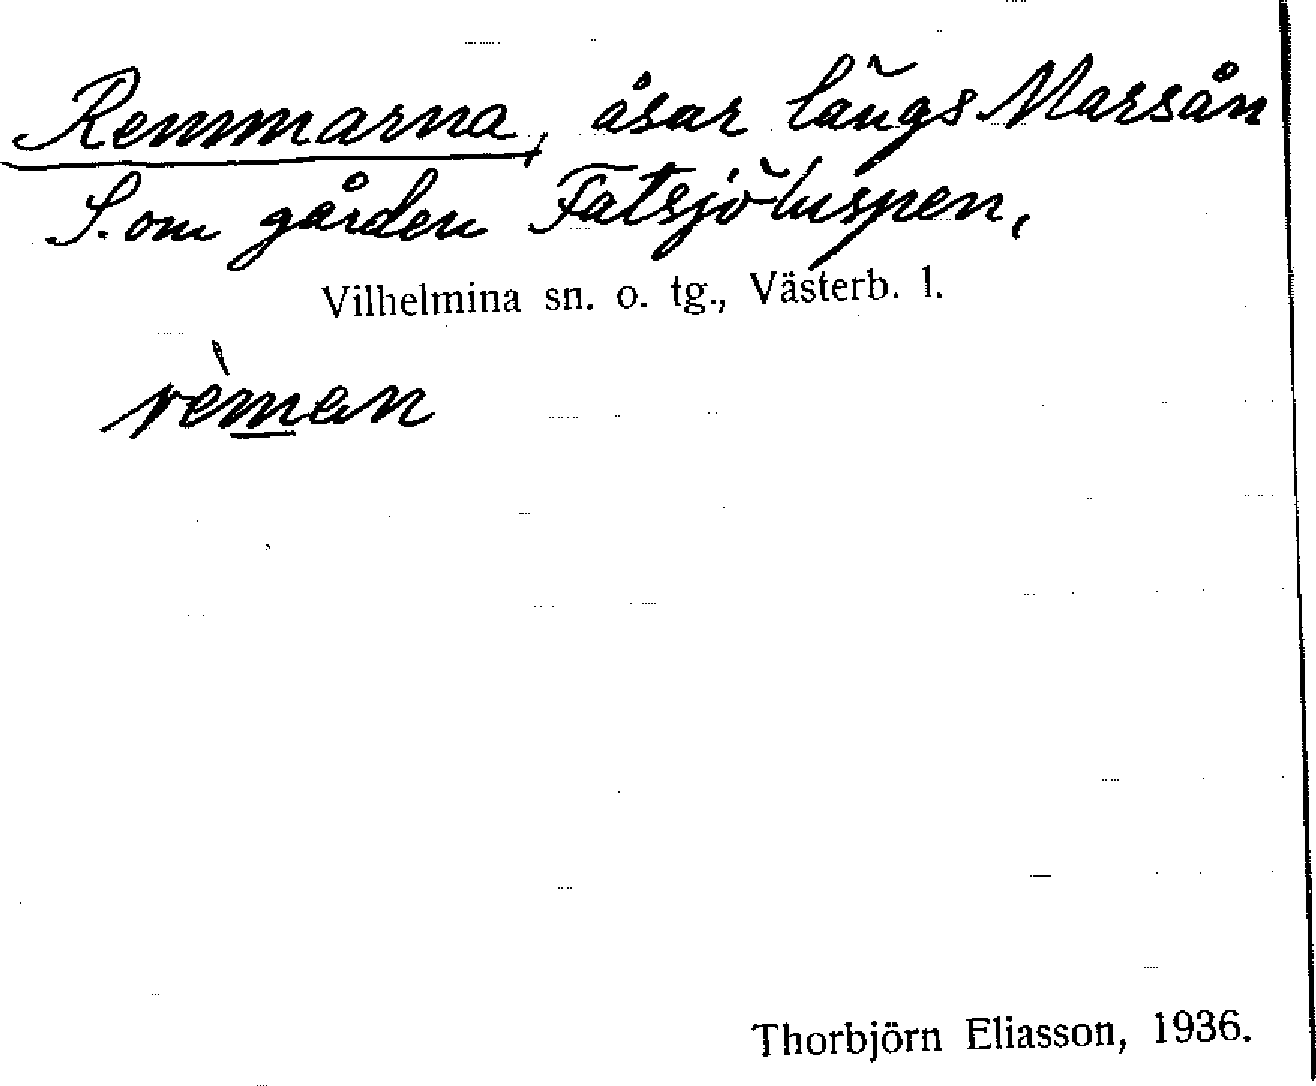 Remmarna, åsar längs Marsån
S. om gården Fatsjöluspen,
Vilhelmina sn. o. tg., Västerb. l.
rèman
Thorbjörn Eliasson, 1936.